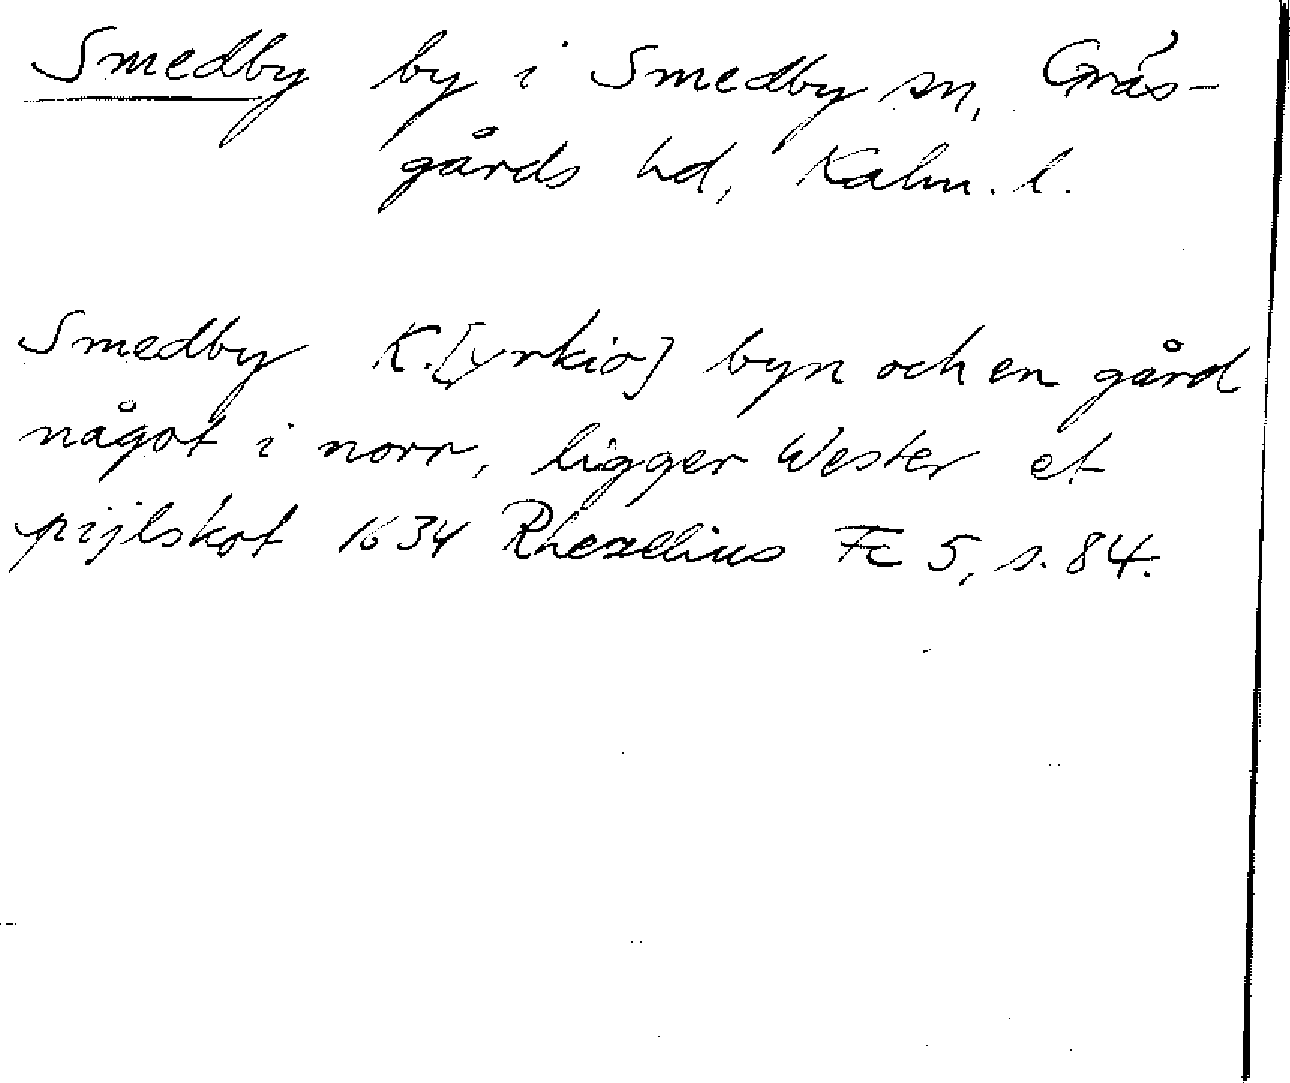 Smedby by i Smedby sn, Gräs-
gårds hd, Kalm. l.
Smedby K.[yrkio] byn och en gård
något i norr, ligger Wester et
pijlskot 1634 Rhezelius Fc 5, s. 84.